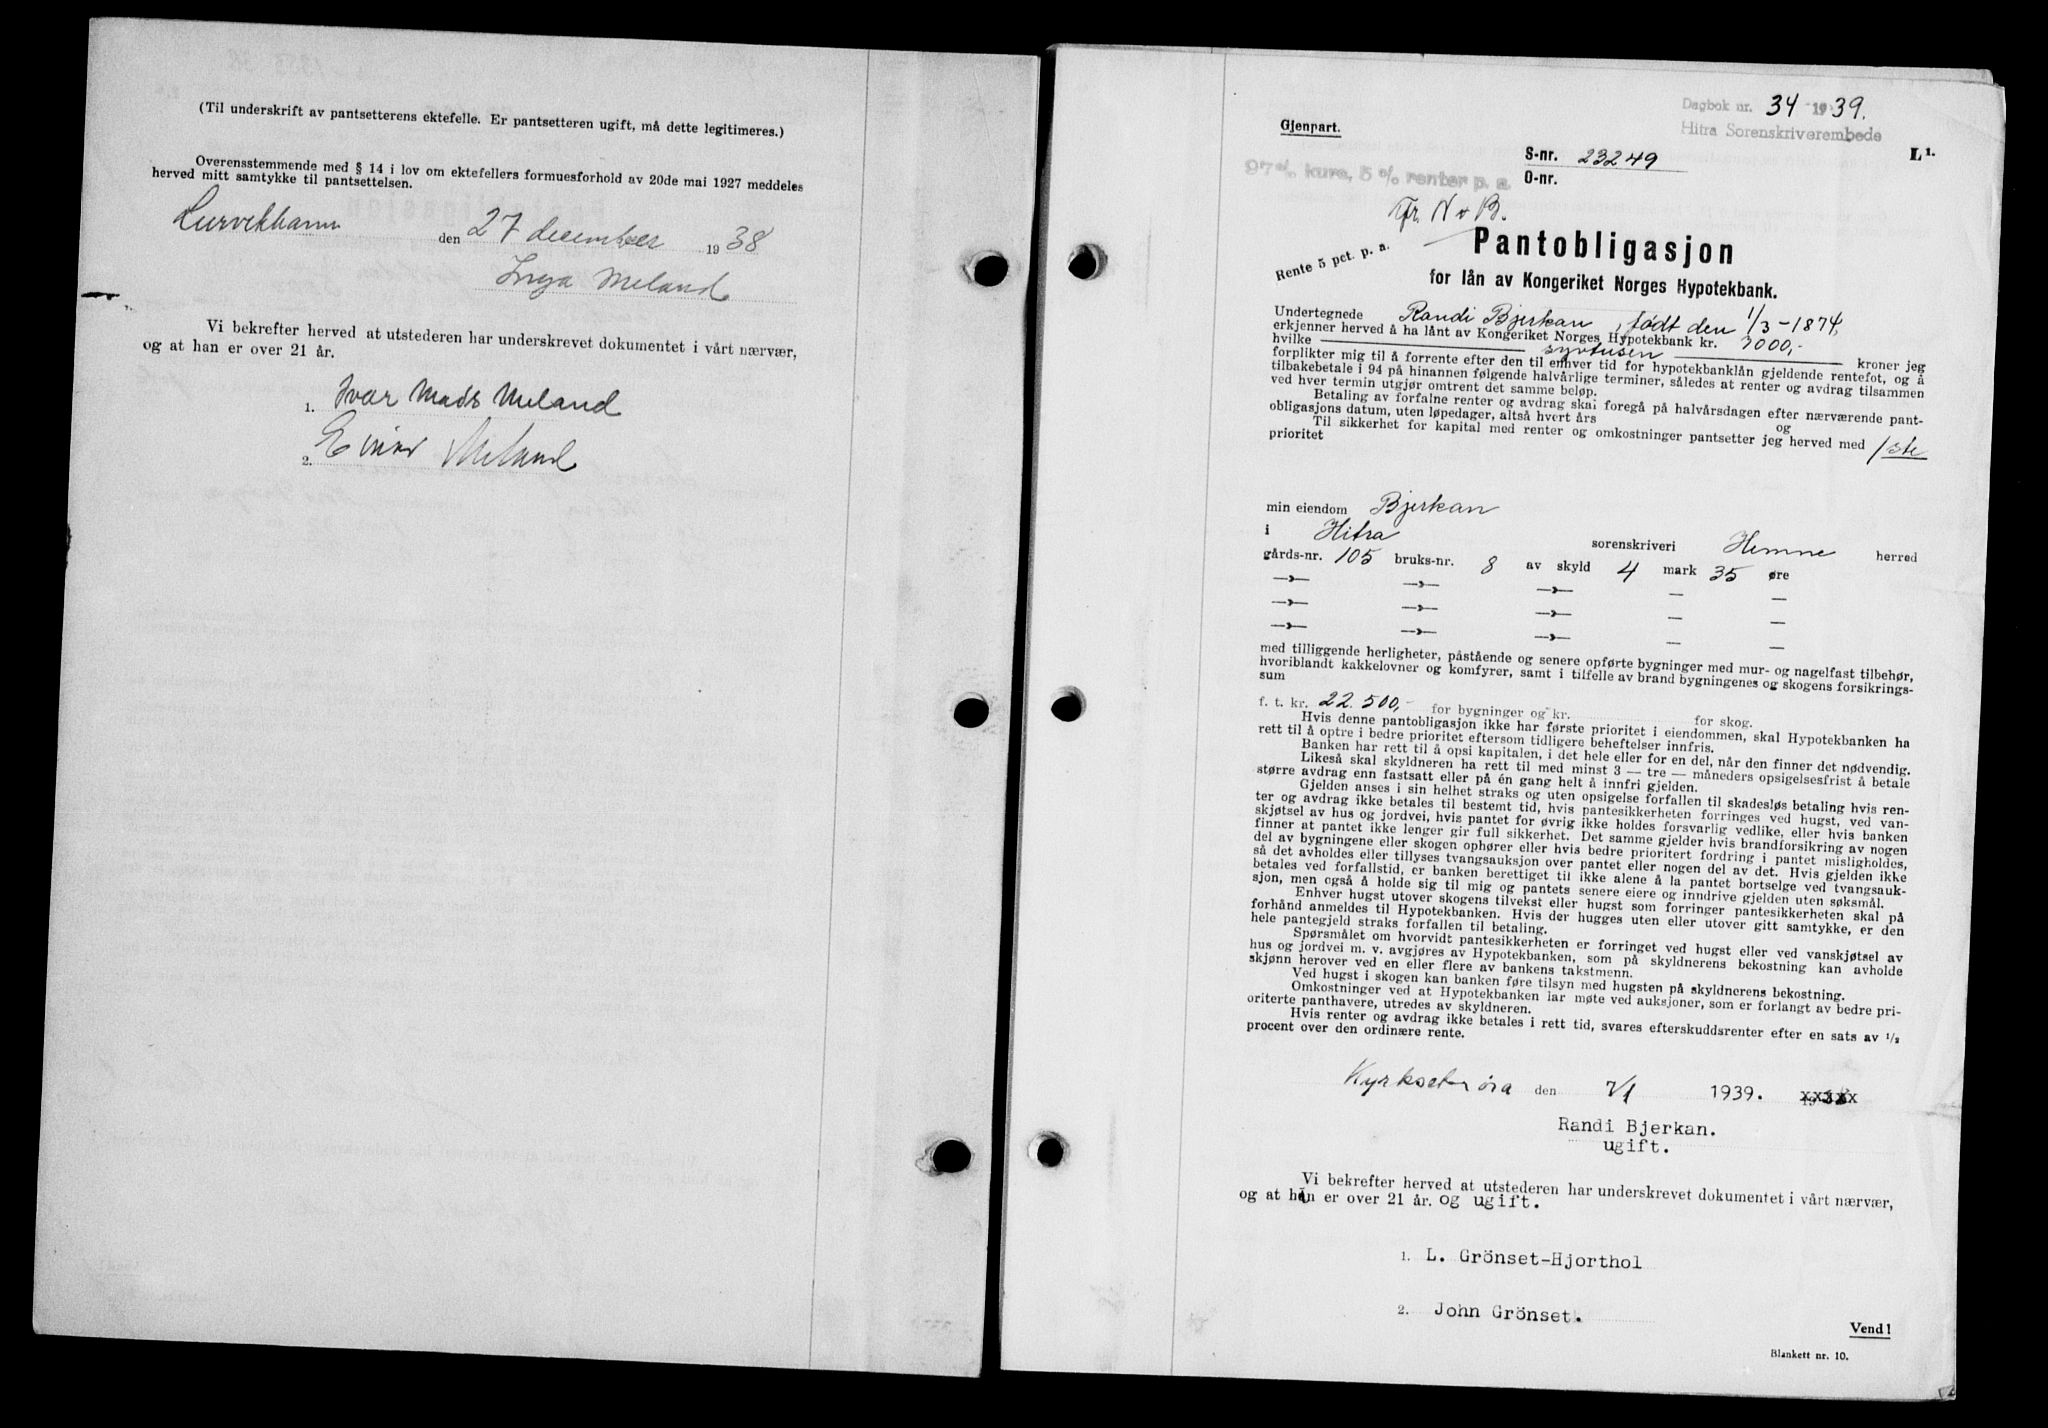 (Til underskrift av pantsetterens ektefelle. Er pantsetteren ugift, må dette legitimeres.)
Overensstemmende med § 14 i lov om ektefellers formuesforhold av 20de mai 1927 meddeles
herved mitt samtykke til pantsettelsen.
den 27 december 1938
Inga Meland
Vi bekrefter herved at utstederen har underskrevet dokumentet i vårt nærvær,
og at han er over 21 år.
1. Ivar Mads Meland
2. Einar Meland
Gjenpart.
Dagbok nr. 34 - 1939.
Hitra Sorenskriverembede
L¹.
S-nr. 23249
O-nr.
97 % kurs, 5 % renter p. a.
Rente 5 pct. p. a.
Pantobligasjon
for lån av Kongeriket Norges Hypotekbank.
Undertegnede Randi Bjerkan, født den 1/3-1874,
erkjenner herved å ha lånt av Kongeriket Norges Hypotekbank kr. 7000,-
hvilke syvtusen kroner jeg
forplikter mig til å forrente efter den til enhver tid for hypotekbanklån gjeldende rentefot, og å
tilbakebetale i 94 på hinannen følgende halvårlige terminer, således at renter og avdrag tilsammen
ved hver termin utgjør omtrent det samme beløp.
Betaling av forfalne renter og avdrag skal foregå på halvårsdagen efter nærværende pant-
obligasjons datum, uten løpedager, altså hvert års og
Til sikkerhet for kapital med renter og omkostninger pantsetter jeg herved med 1ste
prioritet
min eiendom Bjerkan
i Hitra sorenskriveri Hemne herred
gårds-nr. 105 bruks-nr. 8 av skyld 4 mark 35 øre
—»— —»— —»— — —
—»— —»— —»— — —
—»— —»— —»— — —
med tilliggende herligheter, påstående og senere opførte bygninger med mur- og nagelfast tilbehør,
hvoriblandt kakkelovner og komfyrer, samt i tilfelle av brand bygningenes og skogens forsikrings-
sum
f. t. kr. 22.500,- for bygninger og kr. for skog.
Hvis denne pantobligasjon ikke har første prioritet i eiendommen, skal Hypotekbanken ha
rett til å optre i bedre prioritet eftersom tidligere beheftelser innfris.
Banken har rett til å opsi kapitalen, i det hele eller for en del, når den finner det nødvendig.
Likeså skal skyldneren ha rett til med minst 3 — tre — måneders opsigelsesfrist å betale
større avdrag enn fastsatt eller på én gang helt å innfri gjelden.
Gjelden anses i sin helhet straks og uten opsigelse forfallen til skadesløs betaling hvis ren-
ter og avdrag ikke betales til bestemt tid, hvis pantesikkerheten forringes ved hugst, ved van-
skjøtsel av hus og jordvei, hvis pantet for øvrig ikke holdes forsvarlig vedlike, eller hvis banken
finner at pantet ikke lenger gir full sikkerhet. Det samme gjelder hvis brandforsikring av nogen
del av bygningene eller skogen ophører eller hvis bedre prioritert fordring i pantet misligholdes,
så det avholdes eller tillyses tvangsauksjon over pantet eller nogen del av det. Hvis gjelden ikke
betales ved forfallstid, er banken berettiget til ikke alene å la pantet bortselge ved tvangsauk-
sjon, men også å holde sig til mig og pantets senere eiere og inndrive gjelden uten søksmål.
Enhver hugst utover skogens tilvekst eller hugst som forringer pantesikkerheten skal på
forhånd anmeldes til Hypotekbanken. Hvis der hugges uten eller utover gitt samtykke, er den
hele pantegjeld straks forfallen til betaling.
Spørsmålet om hvorvidt pantesikkerheten er forringet ved hugst eller ved vanskjøtsel av
hus og jordvei m. v. avgjøres av Hypotekbanken, som på skyldnerens bekostning kan avholde
skjønn herover ved en eller flere av bankens takstmenn.
Ved hugst i skogen kan banken føre tilsyn med hugsten på skyldnerens bekostning.
Omkostninger ved at Hypotekbanken lar møte ved auksjoner, som er forlangt av bedre pri-
oriterte panthavere, utredes av skyldneren.
Hvis renter og avdrag ikke betales i rett tid, svares efterskuddsrenter efter en sats av 1/2
procent over den ordinære rente.
Kyrksæterøra den 7/1 1939.
Randi Bjerkan.
ugift.
Vi bekrefter herved at utstederen har underskrevet dokumentet i vårt nærvær,
og at han er over 21 år. og ugift.
1. L. Grönset-Hjorthol
2. John Grönset.
Vend!
Blankett nr. 10.